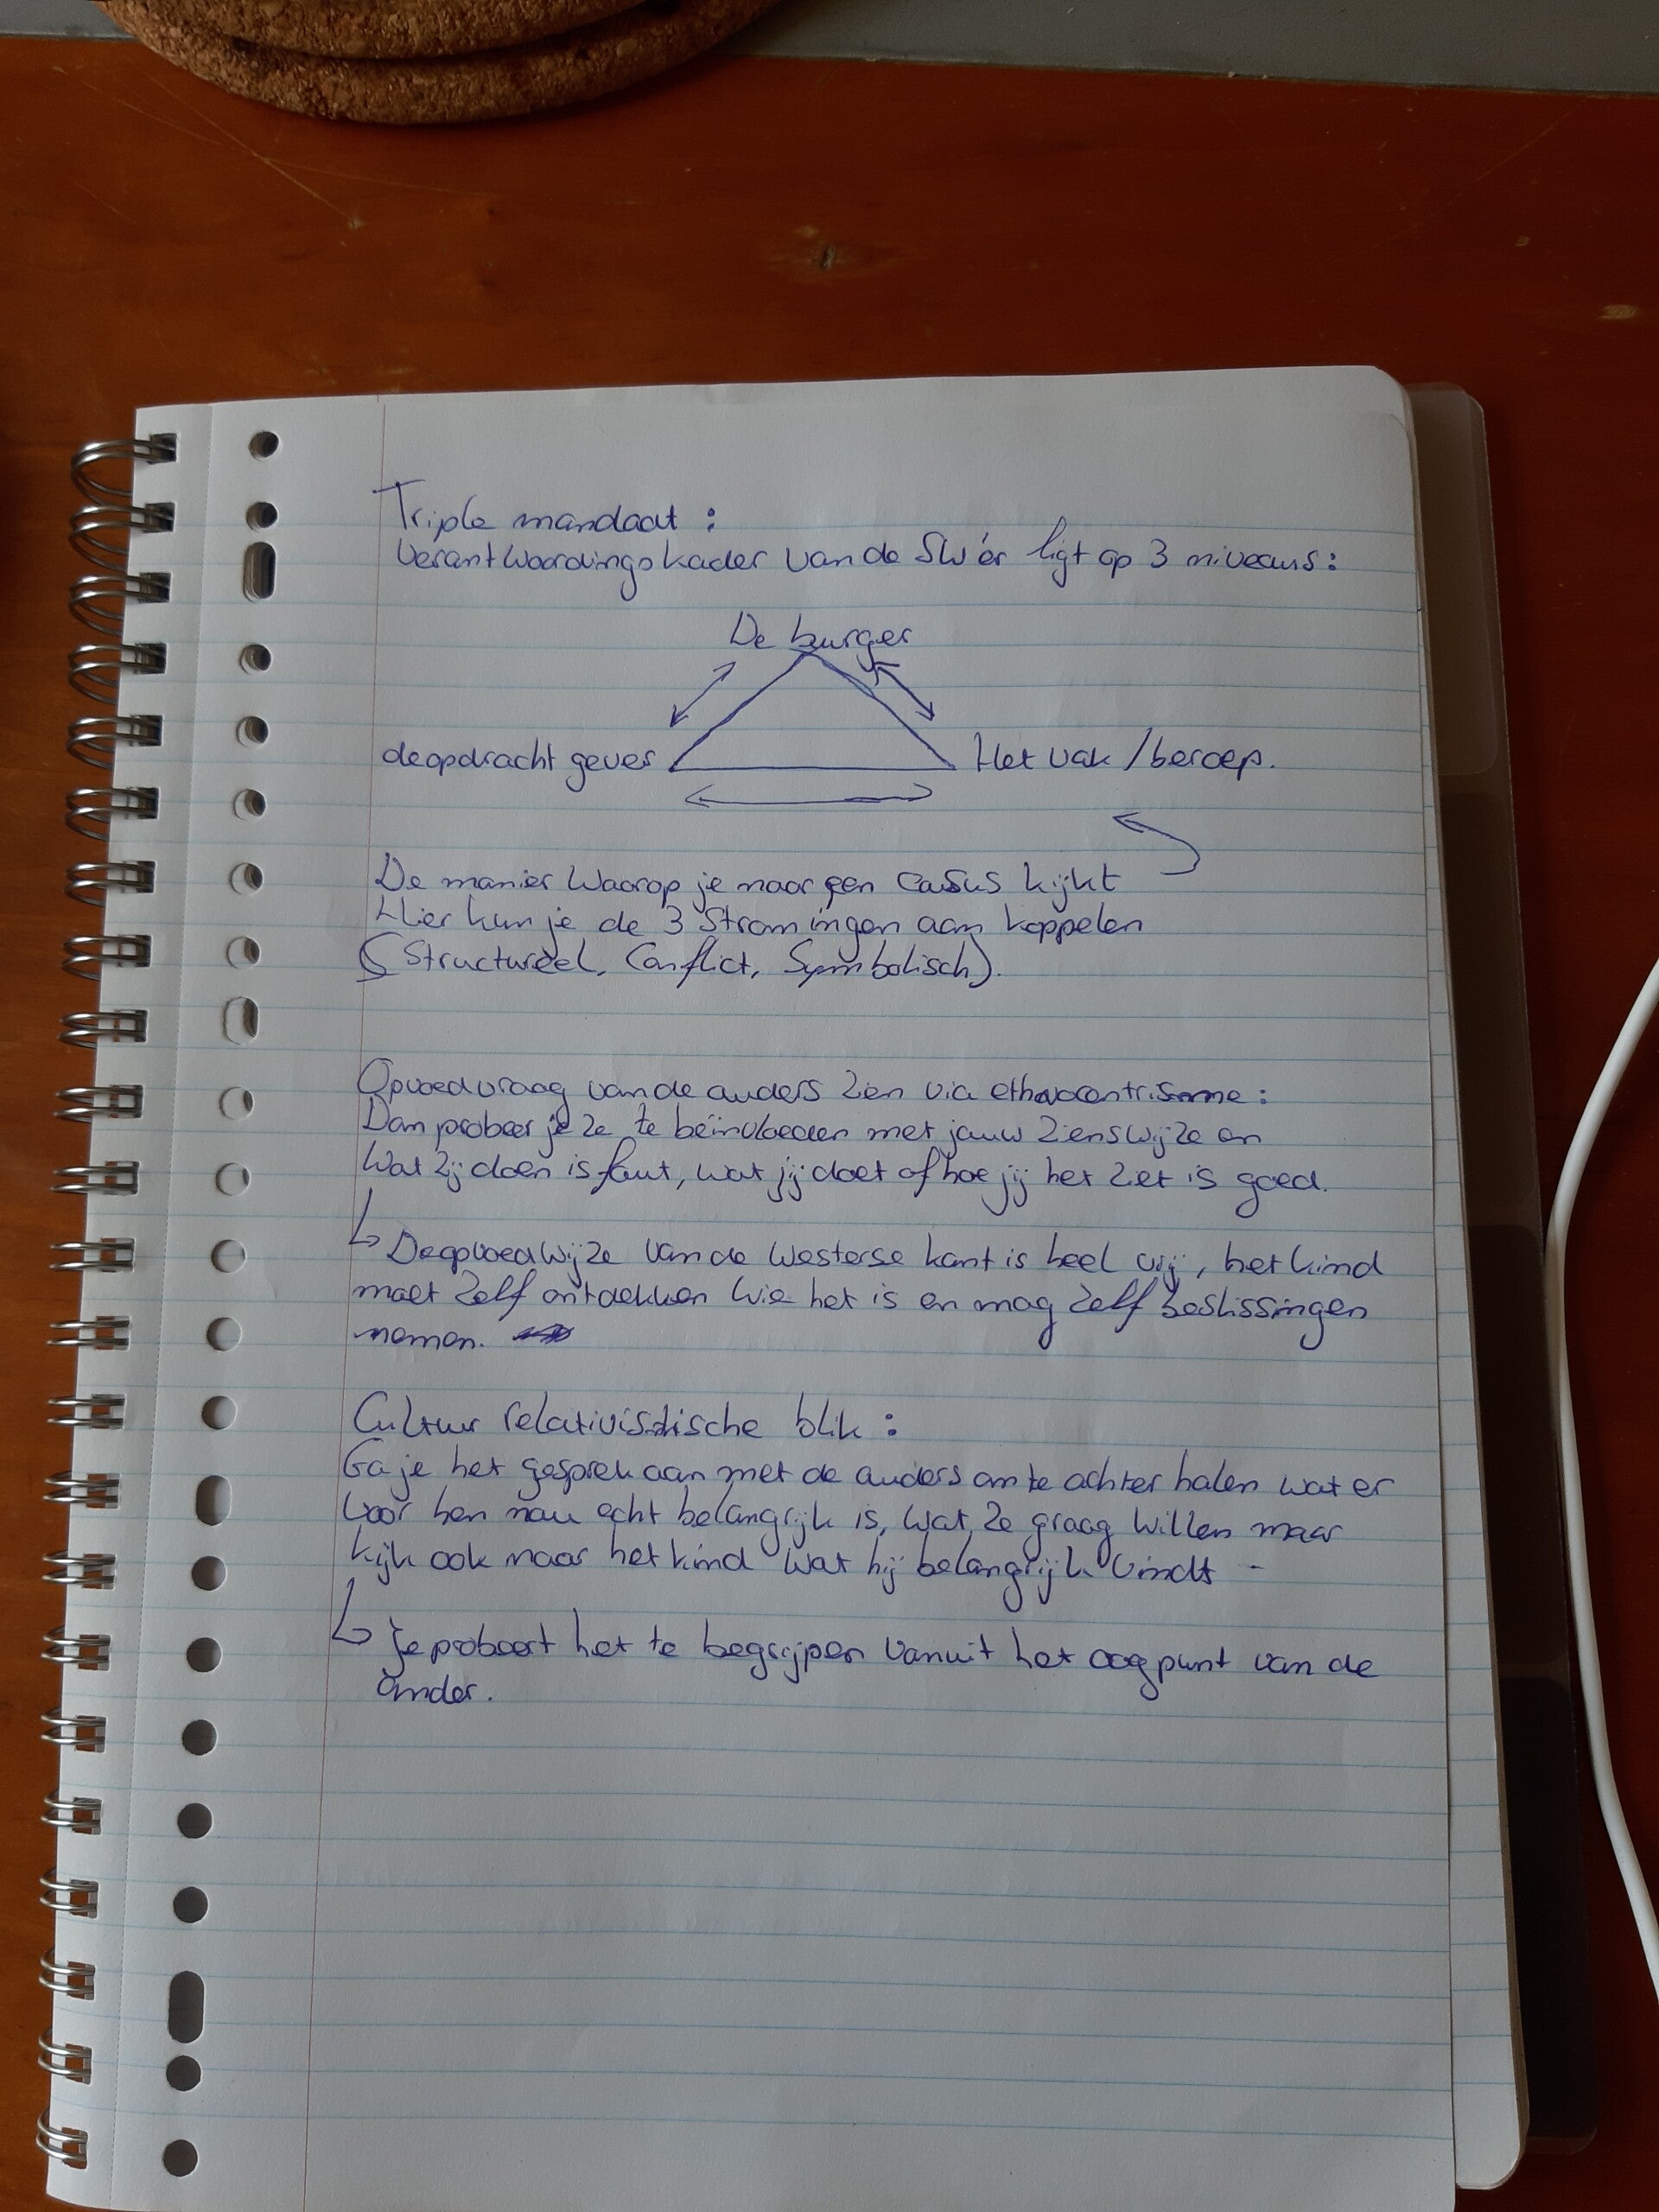 Triple mandaat :
Verantwoordingskader van de SW'er ligt op 3 niveaus:
De burger
de opdracht gever
Het vak / beroep.
De manier waarop je naar een casus kijkt
Hier kun je de 3 Stromingen aan koppelen
(Structureel, Conflict, Symbolisch).
Opvoedvraag van de ouders zien via ethnocentrisme :
Dan probeer je ze te beïnvloeden met jouw zienswijze en
wat zij doen is fout, wat jij doet of hoe jij het ziet is goed.
De opvoedwijze van de westerse kant is heel vrij, het kind
moet zelf ontdekken wie het is en mag zelf beslissingen
nemen.
Cultuur relativistische blik :
Ga je het gesprek aan met de ouders om te achter halen wat er
voor hen nou echt belangrijk is, wat ze graag willen maar
kijk ook naar het kind wat hij belangrijk vindt -
Je probeert het te begrijpen vanuit het oogpunt van de
ander.